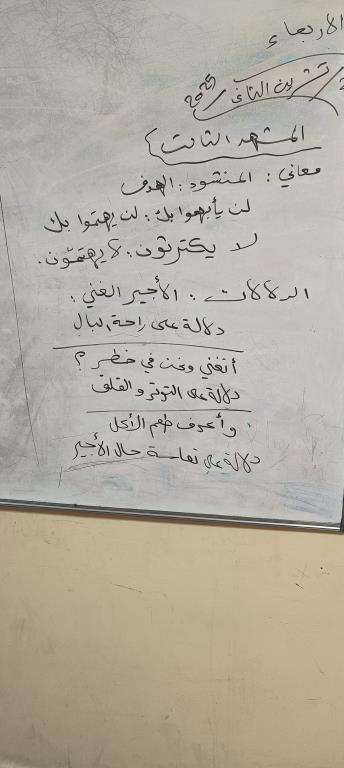 الاربعاء
تشرين الثاني / 2025
المشهد الثالث
معاني : المنشود : الهدف
لن يأبهوا بك : لن يهتموا بك
لا يكترثون : لا يهتمّون .
الدلالات : الأجير الغني :
دلالة على راحة البال
أتغني ونحن في خطر ؟
دلالة على التوتر والقلق
وأعرف طعم الأكل
دلالة على تعاسة حال الأجير